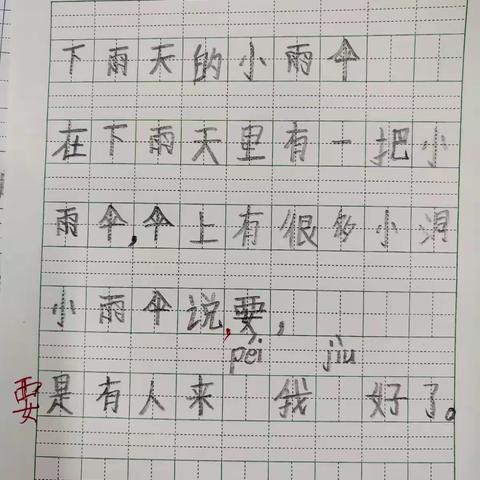 下雨天的小雨伞
在下雨天里有一把小
雨伞,伞上有很多小洞
小雨伞说,要,
péi jiù
要是有人来 我 好了。